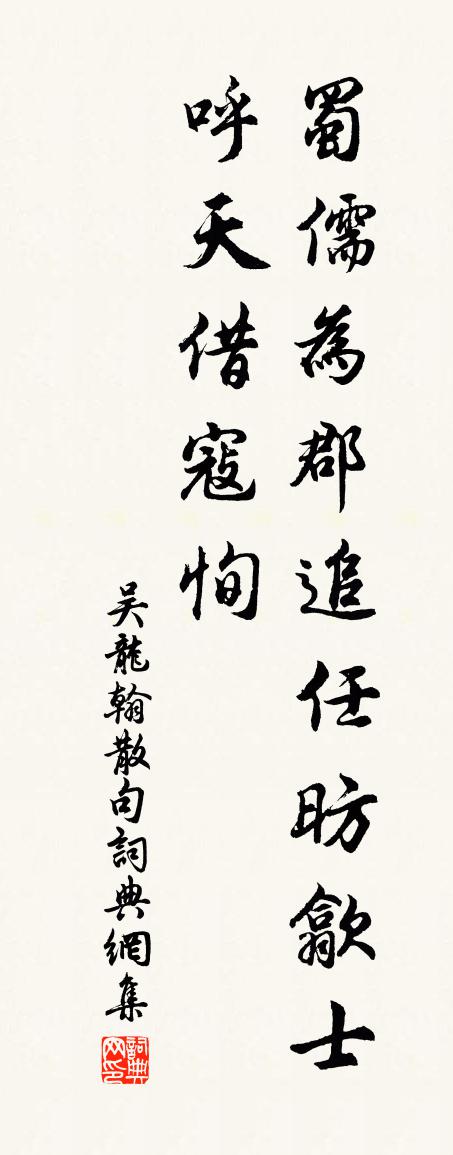 蜀儒為郡追任昉歙士
呼天借寇恂
吴龍翰散句詞典網集
詞典网印